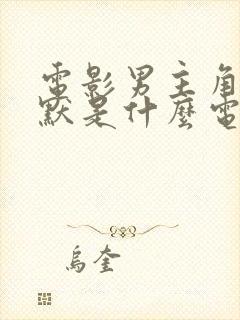 電影男主角
默是什麼電
烏奎